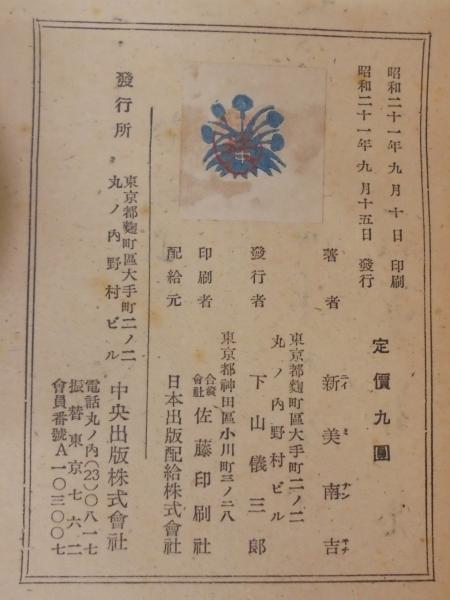 昭和二十一年九月十日 印刷
昭和二十一年九月十五日 發行
定價九圓
著者 新美南吉
ニイ ミ ナン キチ
東京都麴町區大手町二ノ二
丸ノ內野村ビル
發行者 下山儀三郞
東京都神田區小川町三ノ二八
印刷者 合資會社 佐藤印刷社
配給元 日本出版配給株式會社
發行所
東京都麴町區大手町二ノ二
丸ノ內野村ビル
中央出版株式會社
電話丸ノ內(23)〇八一七
振替東京七六二
會員番號A一〇三〇〇七